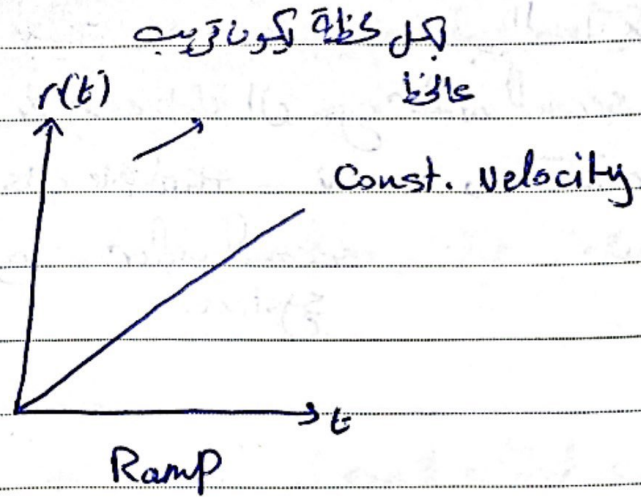 بكل لحظة بكون قريب
عالخط
r(t)
Const. Velocity
t
Ramp